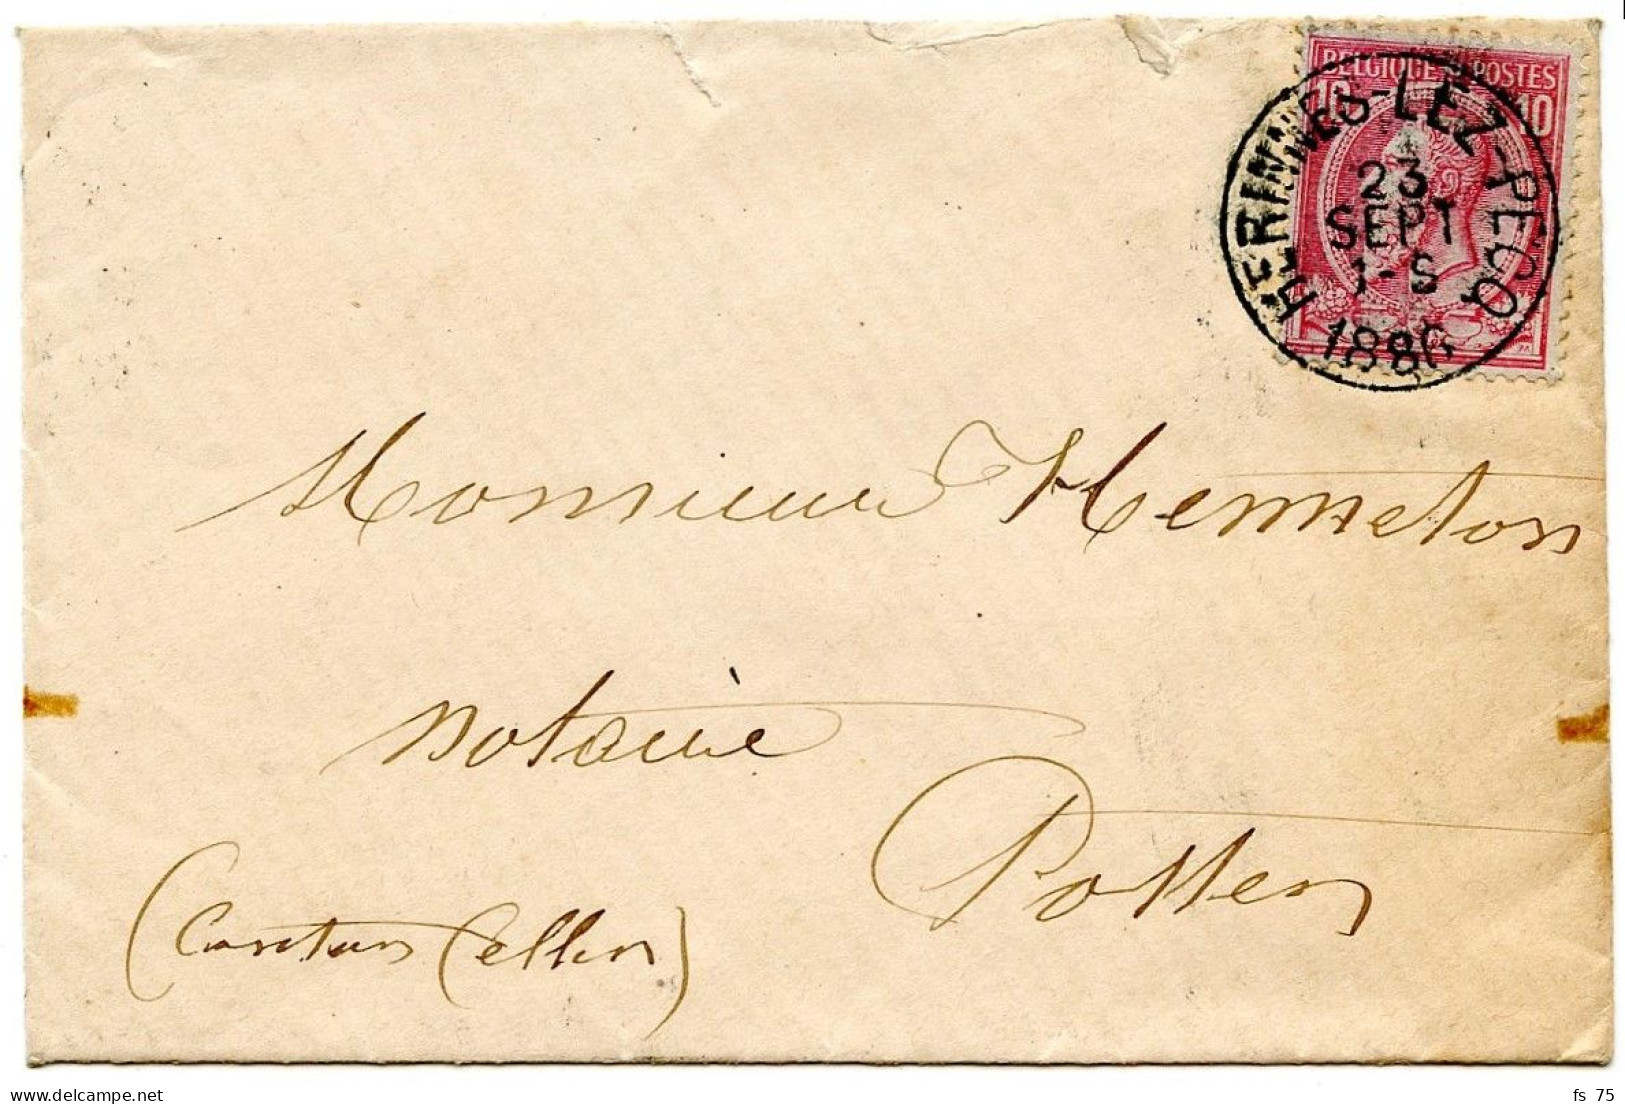 BELGIQUE POSTES
10 10
HERINNES-LEZ-PECQ
23
SEPT
1-S
1886
Monsieur Henneton
notaire
Potter
(Canton Celles)
www.delcampe.net
fs 75